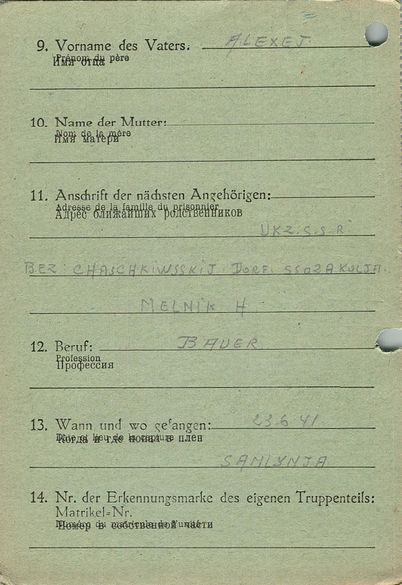 9. Vorname des Vaters: ALEXEJ.
Prénom du père
Имя отца
10. Name der Mutter:
Nom de la mère
Имя матери
11. Anschrift der nächsten Angehörigen:
Adresse de la famille du prisonnier
Адрес ближайших родственников
UKR.S.S.R.
BEZ CHASCHKIWSSKIJ DORF.
MELNIK H
12. Beruf: BAUER
Profession
Профессия
13. Wann und wo gefangen: 23.6.41
Когда и где попал в плен
SAMLYNJA
14. Nr. der Erkennungsmarke des eigenen Truppenteils:
Matrikel=Nr.
Номер в собственной части